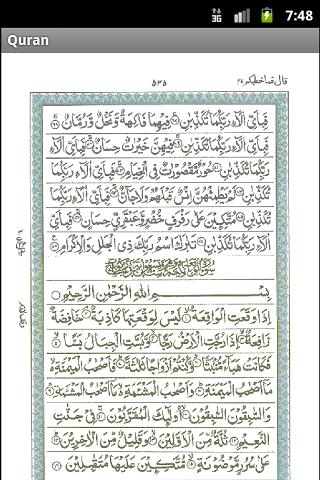 7:48
Quran
قال فما خطبكم ٢٧
٥٣٥
فَبِأَيِّ اٰلَآءِ رَبِّكُمَا تُكَذِّبٰنِ ۝٦٧ فِيْهِمَا فَاكِهَةٌ وَّنَخْلٌ وَّرُمَّانٌ ۝٦٨
فَبِأَيِّ اٰلَآءِ رَبِّكُمَا تُكَذِّبٰنِ ۝٦٩ فِيْهِنَّ خَيْرٰتٌ حِسَانٌ ۝٧٠ فَبِأَيِّ اٰلَآءِ
رَبِّكُمَا تُكَذِّبٰنِ ۝٧١ حُوْرٌ مَّقْصُوْرٰتٌ فِي الْخِيَامِ ۝٧٢ فَبِأَيِّ اٰلَآءِ رَبِّكُمَا
تُكَذِّبٰنِ ۝٧٣ لَمْ يَطْمِثْهُنَّ اِنْسٌ قَبْلَهُمْ وَلَا جَآنٌّ ۝٧٤ فَبِأَيِّ اٰلَآءِ رَبِّكُمَا
تُكَذِّبٰنِ ۝٧٥ مُتَّكِـِٕيْنَ عَلٰى رَفْرَفٍ خُضْرٍ وَّعَبْقَرِيٍّ حِسَانٍ ۝٧٦ فَبِأَيِّ
اٰلَآءِ رَبِّكُمَا تُكَذِّبٰنِ ۝٧٧ تَبٰرَكَ اسْمُ رَبِّكَ ذِي الْجَلٰلِ وَالْاِكْرَامِ ۝٧٨
بِسْمِ اللهِ الرَّحْمٰنِ الرَّحِيْمِ
اِذَا وَقَعَتِ الْوَاقِعَةُ ۝١ لَيْسَ لِوَقْعَتِهَا كَاذِبَةٌ ۝٢ خَافِضَةٌ
رَّافِعَةٌ ۝٣ اِذَا رُجَّتِ الْاَرْضُ رَجًّا ۝٤ وَّبُسَّتِ الْجِبَالُ بَسًّا ۝٥
فَكَانَتْ هَبَآءً مُّنْۢبَثًّا ۝٦ وَّكُنْتُمْ اَزْوَاجًا ثَلٰثَةً ۝٧ فَاَصْحٰبُ الْمَيْمَنَةِ
مَآ اَصْحٰبُ الْمَيْمَنَةِ ۝٨ وَاَصْحٰبُ الْمَشْـَٔمَةِ مَآ اَصْحٰبُ الْمَشْـَٔمَةِ ۝٩
وَالسّٰبِقُوْنَ السّٰبِقُوْنَ ۝١٠ اُولٰٓئِكَ الْمُقَرَّبُوْنَ ۝١١ فِيْ جَنّٰتِ
النَّعِيْمِ ۝١٢ ثُلَّةٌ مِّنَ الْاَوَّلِيْنَ ۝١٣ وَقَلِيْلٌ مِّنَ الْاٰخِرِيْنَ ۝١٤
عَلٰى سُرُرٍ مَّوْضُوْنَةٍ ۝١٥ مُّتَّكِـِٕيْنَ عَلَيْهَا مُتَقٰبِلِيْنَ ۝١٦